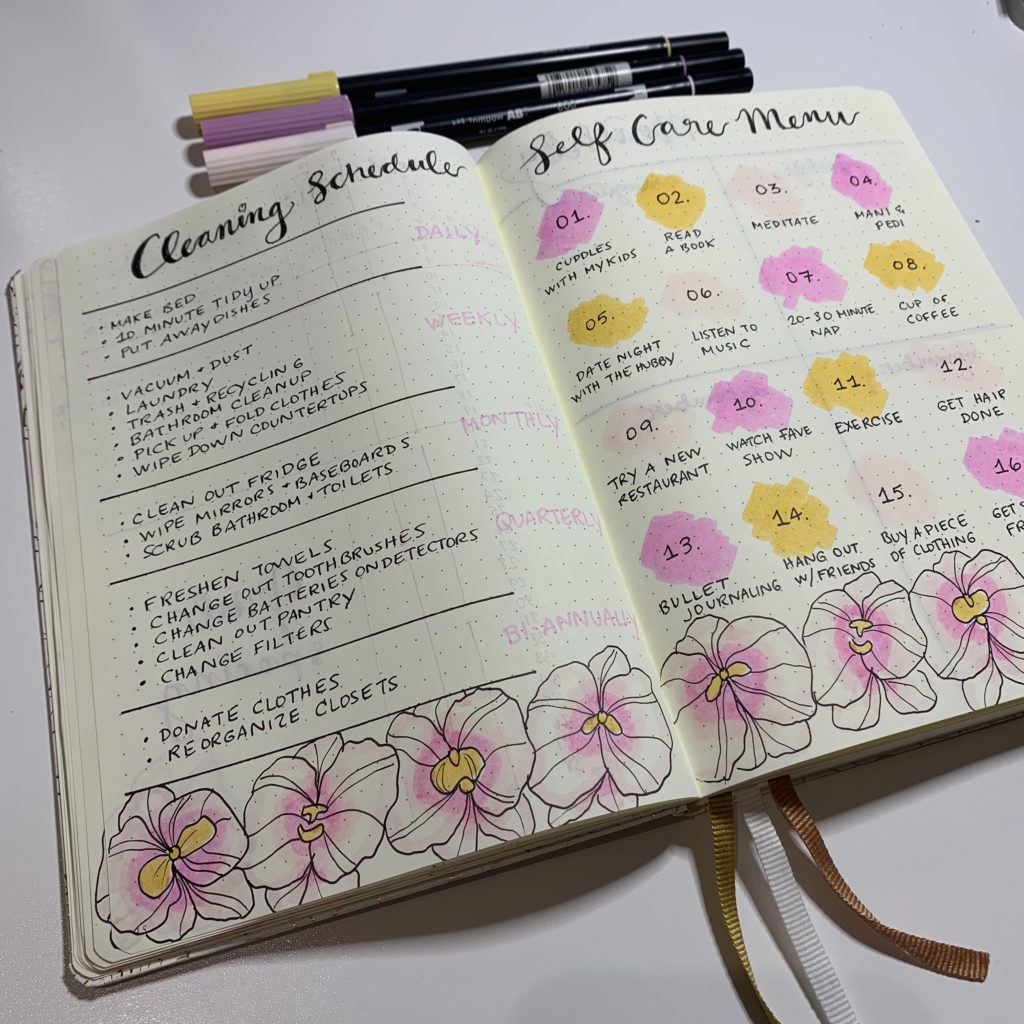 Cleaning Scheduler
DAILY
• MAKE BED
• 10 MINUTE TIDY UP
• PUT AWAY DISHES
WEEKLY
• VACUUM + DUST
• LAUNDRY
• TRASH + RECYCLING
• BATHROOM CLEANUP
• PICK UP + FOLD CLOTHES
• WIPE DOWN COUNTERTOPS
MONTHLY
• CLEAN OUT FRIDGE
• WIPE MIRRORS + BASEBOARDS
• SCRUB BATHROOM + TOILETS
QUARTERLY
• FRESHEN TOWELS
• CHANGE OUT TOOTHBRUSHES
• CHANGE BATTERIES ON DETECTORS
• CLEAN OUT PANTRY
• CHANGE FILTERS
BI-ANNUALLY
• DONATE CLOTHES
• REORGANIZE CLOSETS
Self Care Menu
01.
CUDDLES
WITH MY KIDS
02.
READ
A BOOK
03.
MEDITATE
04.
MANI &
PEDI
05.
DATE NIGHT
WITH THE HUBBY
06.
LISTEN TO
MUSIC
07.
20-30 MINUTE
NAP
08.
CUP OF
COFFEE
09.
TRY A NEW
RESTAURANT
10.
WATCH FAVE
SHOW.
11.
EXERCISE
12.
GET HAIR
DONE
13.
BULLET
JOURNALING
14.
HANG OUT
W/ FRIENDS
15.
BUY A PIECE
OF CLOTHING
16.
GET